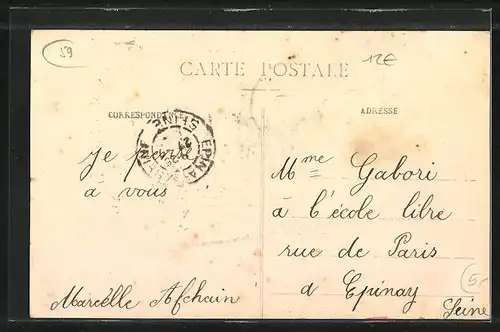 59
12€
CARTE POSTALE
CORRESPONDANCE
ADRESSE
EPINAY SEINE
Je pense
à vous
Marcelle Afchain
Mme Gabori
à l'école libre
rue de Paris
à Epinay
Seine
5-